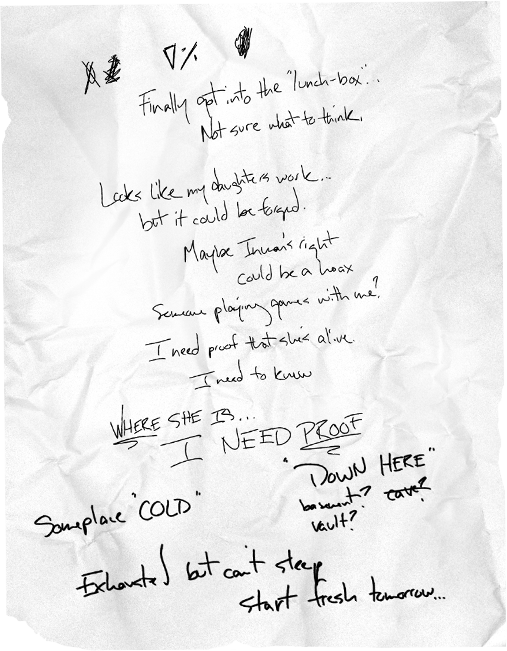 Finally got into the "lunch-box"...
Not sure what to think.
Looks like my daughters work...
but it could be forged.
Maybe Inman's right
could be a hoax
Someone playing games with me?
I need proof that she's alive.
I need to know
WHERE SHE IS...
I NEED PROOF
"DOWN HERE"
basement? cave?
vault?
Someplace "COLD"
Exhausted but can't sleep
start fresh tomorrow...